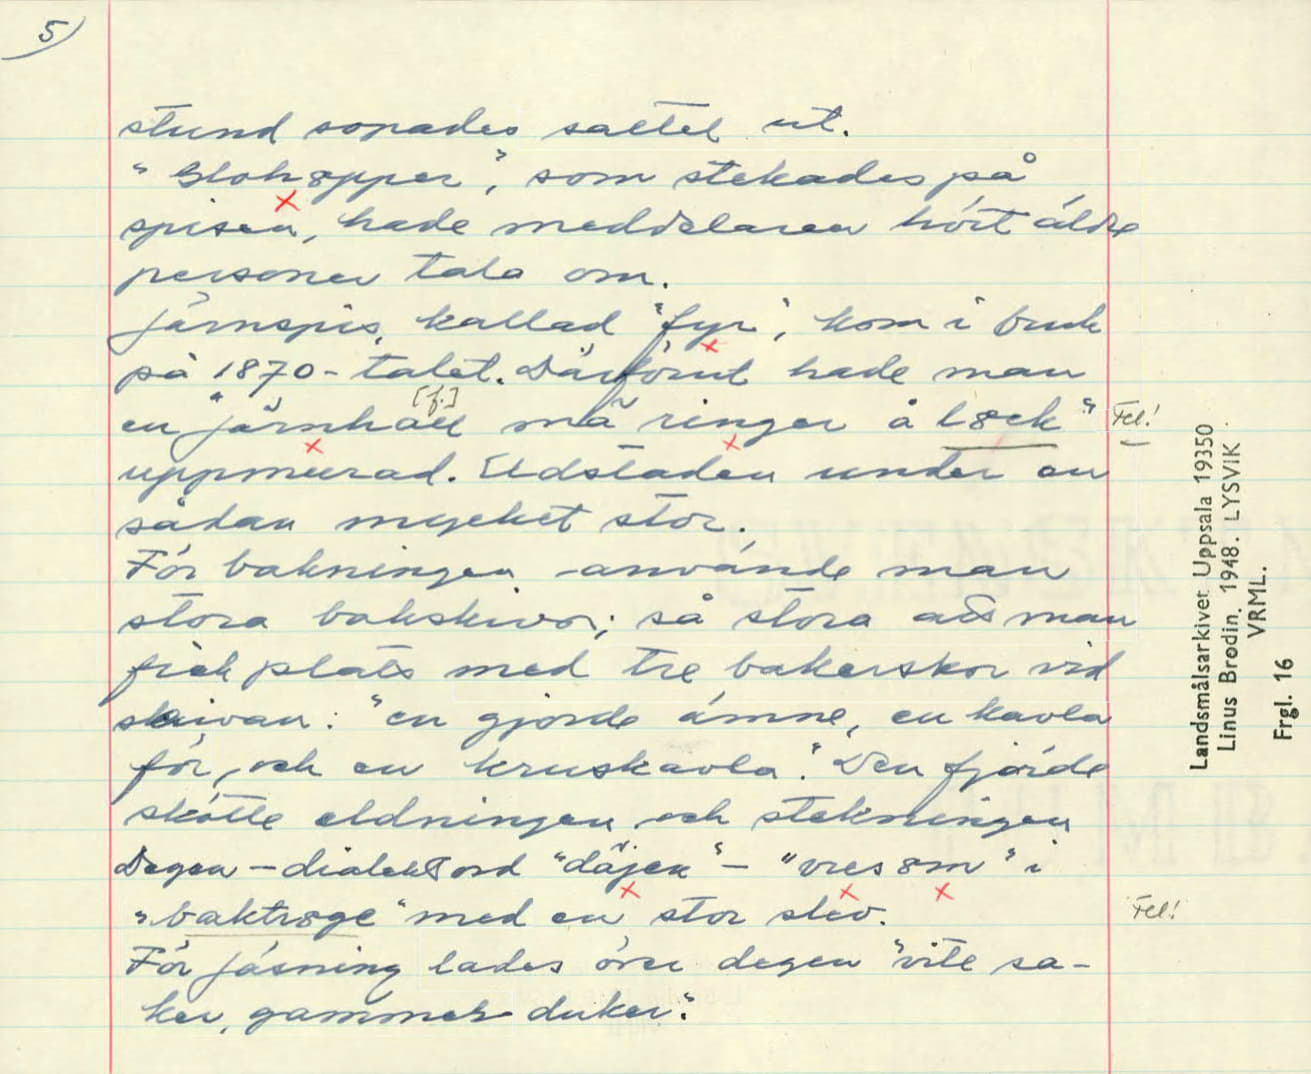 5
stund sopades saltet ut.
"Glohopper", som stekades på
spisen, hade meddelaren hört äldre
personer tala om.
Järnspis, kallad "fyr", kom i bruk
på 1870-talet. Därförut hade man
[f.]
en "järnhäll mä ringer å l8ck" Fel!
uppmurad. Eldstaden under en
sådan mycket stor.
För bakningen använde man
stora bakskivor; så stora att man
fick plats med tre bakerskor vid
skivan: "en gjorde ämne, en kavla
för, och en kruskavla". Den fjärde
skötte eldningen och stekningen
Degen – dialektord "däjen" – "vres 8m" i
"baktr8ge" med en stor slev. Fel!
För jäsning lades över degen "vite sa-
ker, gammel dukar."
Landsmålsarkivet Uppsala 19350
Linus Brodin. 1948. LYSVIK
VRML.
Frgl. 16